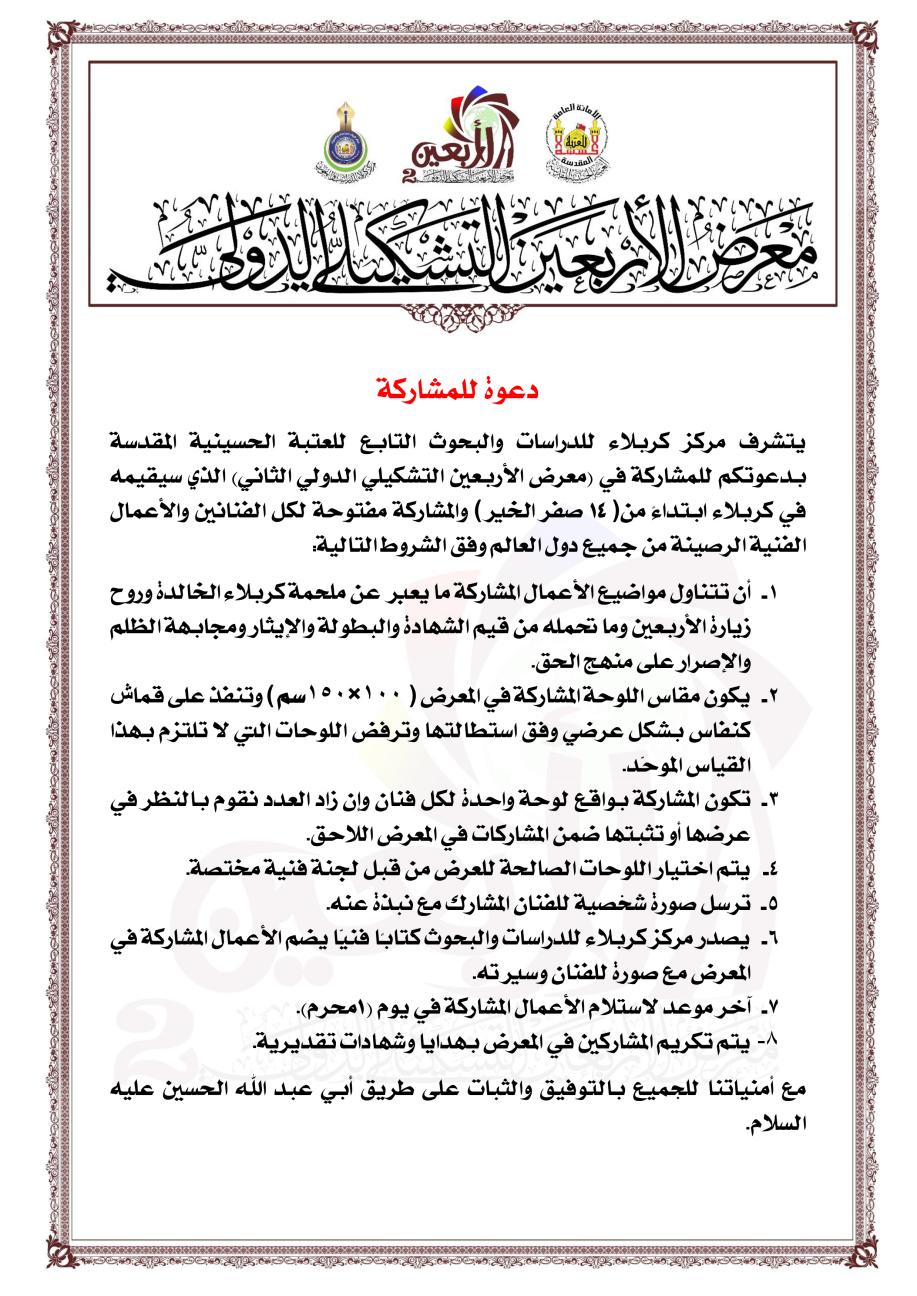 الأمانة العامة
للعتبة
المقدسة
الأربعين
2
معرض الأربعين التشكيلي الدولي
دعوة للمشاركة
يتشرف مركز كربلاء للدراسات والبحوث التابع للعتبة الحسينية المقدسة
بدعوتكم للمشاركة في (معرض الأربعين التشكيلي الدولي الثاني) الذي سيقيمه
في كربلاء ابتداءَ من( ١٤ صفر الخير ) والمشاركة مفتوحة لكل الفنانين والأعمال
الفنية الرصينة من جميع دول العالم وفق الشروط التالية:
١ـ أن تتناول مواضيع الأعمال المشاركة ما يعبر عن ملحمة كربلاء الخالدة وروح
زيارة الأربعين وما تحمله من قيم الشهادة والبطولة والإيثار ومجابهة الظلم
والإصرار على منهج الحق.
٢ـ يكون مقاس اللوحة المشاركة في المعرض ( ١٠٠×١٥٠سم ) وتنفذ على قماش
كنفاس بشكل عرضي وفق استطالتها وترفض اللوحات التي لا تلتزم بهذا
القياس الموحَد.
٣ـ تكون المشاركة بواقع لوحة واحدة لكل فنان وان زاد العدد نقوم بالنظر في
عرضها أو تثبتها ضمن المشاركات في المعرض اللاحق.
٤ـ يتم اختيار اللوحات الصالحة للعرض من قبل لجنة فنية مختصة.
٥ـ ترسل صورة شخصية للفنان المشارك مع نبذة عنه.
٦ـ يصدر مركز كربلاء للدراسات والبحوث كتابَا فنيَا يضم الأعمال المشاركة في
المعرض مع صورة للفنان وسيرته.
٧ـ آخر موعد لاستلام الأعمال المشاركة في يوم (١محرم).
٨- يتم تكريم المشاركين في المعرض بهدايا وشهادات تقديرية.
مع أمنياتنا للجميع بالتوفيق والثبات على طريق أبي عبد الله الحسين عليه
السلام.